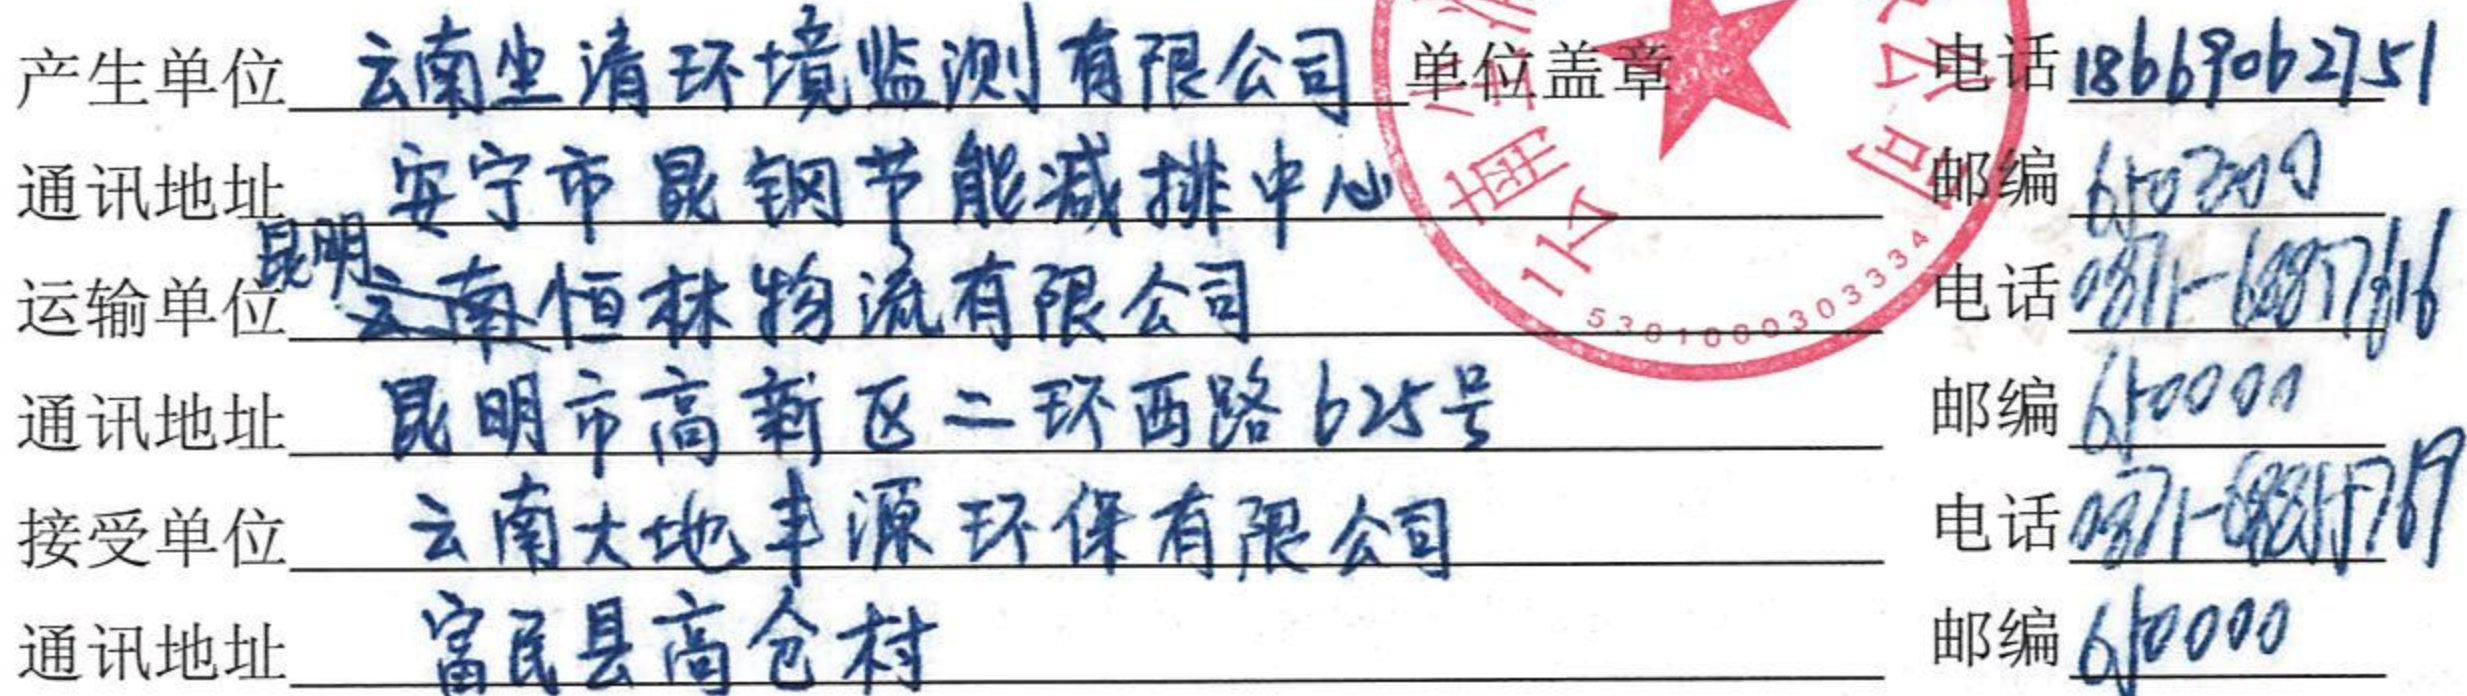 产生单位 云南坐清环境监测有限公司 单位盖章 电话 18669062751
通讯地址 安宁市昆钢节能减排中心 邮编 650300
昆明
运输单位 云南恒林物流有限公司 电话
通讯地址 昆明市高新区二环西路625号 邮编 650000
接受单位 云南大地丰源环保有限公司 电话
通讯地址 富民县高仓村 邮编 650000
云南 公司
5301000303334